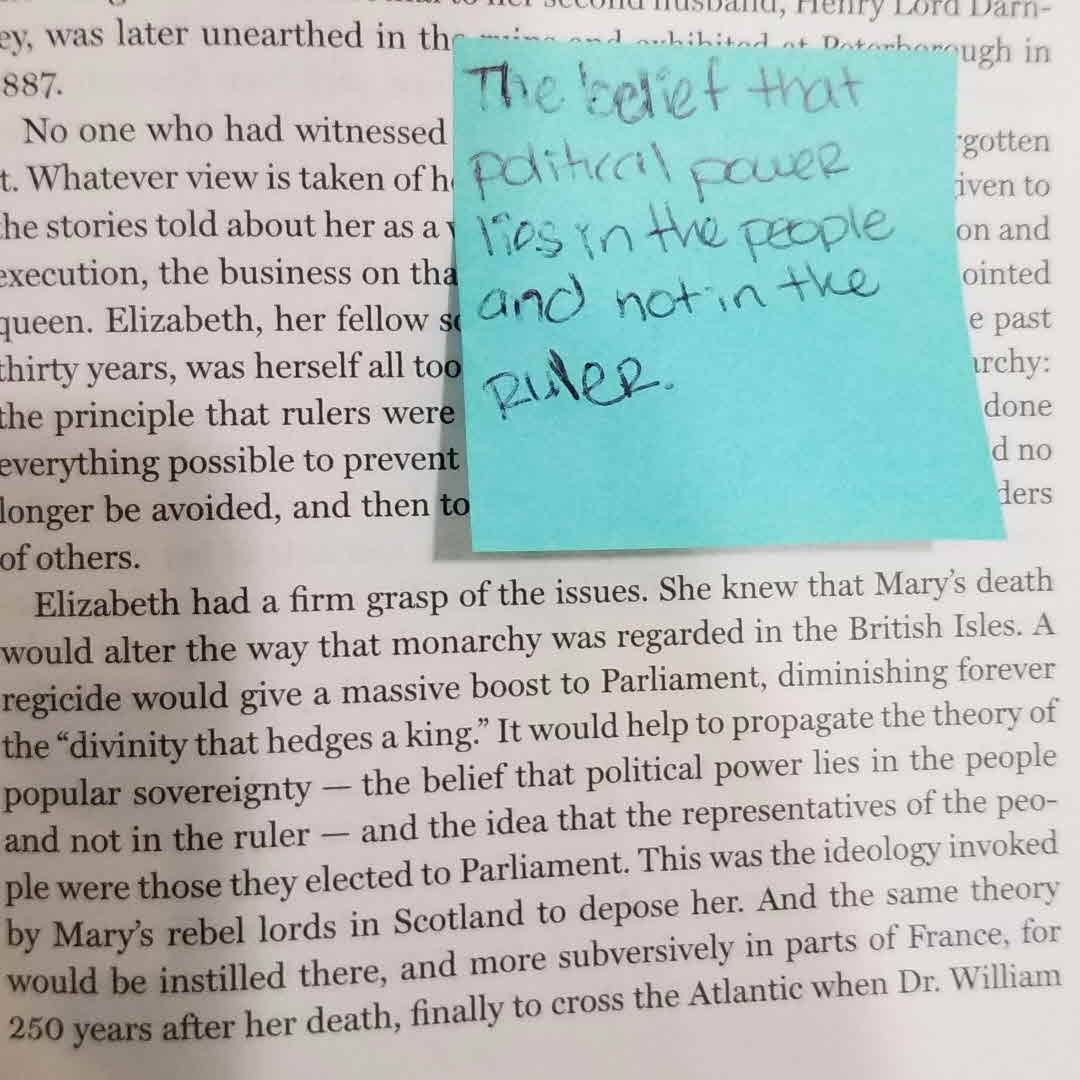 second husband, Henry Lord Darn-
ey, was later unearthed in the ruins and exhibited at Peterborough in
887.
No one who had witnessed
t. Whatever view is taken of h
he stories told about her as a
execution, the business on tha
queen. Elizabeth, her fellow so
thirty years, was herself all too
the principle that rulers were
everything possible to prevent
longer be avoided, and then to
of others.
The belief that
political power
lies in the people
and not in the
RuleR.
gotten
iven to
on and
ointed
e past
archy:
done
d no
ders
Elizabeth had a firm grasp of the issues. She knew that Mary's death
would alter the way that monarchy was regarded in the British Isles. A
regicide would give a massive boost to Parliament, diminishing forever
the “divinity that hedges a king.” It would help to propagate the theory of
popular sovereignty — the belief that political power lies in the people
and not in the ruler — and the idea that the representatives of the peo-
ple were those they elected to Parliament. This was the ideology invoked
by Mary's rebel lords in Scotland to depose her. And the same theory
would be instilled there, and more subversively in parts of France, for
250 years after her death, finally to cross the Atlantic when Dr. William